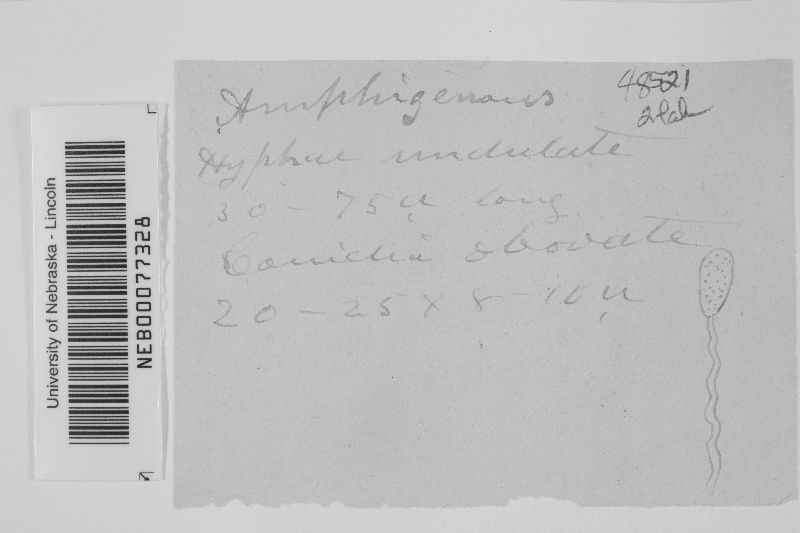 University of Nebraska - Lincoln
NEB00077328
48521
Amphigenous
Hyphae undulate
30 - 75 µ long
Conidia obovate
20 - 25 X 8-10 µ